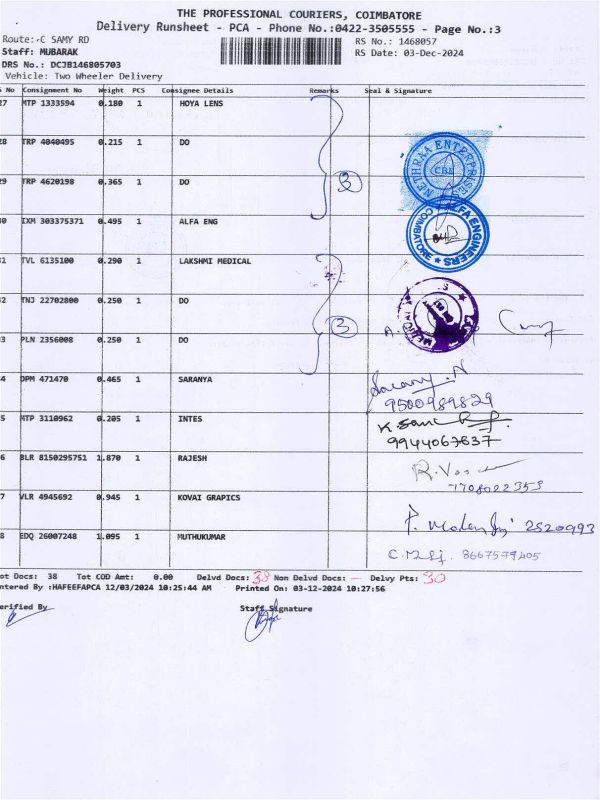 THE PROFESSIONAL COURIERS, COIMBATORE
Delivery Runsheet - PCA - Phone No.:0422-3505555 - Page No.:3
Route: C SAMY RD
RS No.: 1468057
Staff: MUBARAK
RS Date: 03-Dec-2024
DRS No.: DCJB146805703
Vehicle: Two Wheeler Delivery
No Consignment No Weight PCS Consignee Details Remarks Seal & Signature
27 MTP 1333594 0.180 1 HOYA LENS
28 TRP 4040495 0.215 1 DO
NETHRAA ENTERPRISES
CBE
29 TRP 4620198 0.365 1 DO
3
30 IXM 303375371 0.495 1 ALFA ENG
ALFA ENGINEERS
COIMBATORE
31 TVL 6135100 0.290 1 LAKSHMI MEDICAL
32 TNJ 22702800 0.250 1 DO
3
33 PLN 2356008 0.250 1 DO
34 DPM 471470 0.465 1 SARANYA
Sarany. N
9500989829
35 MTP 3110962 0.205 1 INTES
9944067837
36 BLR 8150295751 1.870 1 RAJESH
7708022353
37 VLR 4945692 0.945 1 KOVAI GRAPICS
2520993
38 EDQ 26007248 1.095 1 MUTHUKUMAR
8667579405
Tot Docs: 38 Tot COD Amt: 0.00 Delvd Docs: 38 Non Delvd Docs: — Delvy Pts: 30
Entered By :HAFEEFAPCA 12/03/2024 10:25:44 AM Printed On: 03-12-2024 10:27:56
Verified By Staff Signature